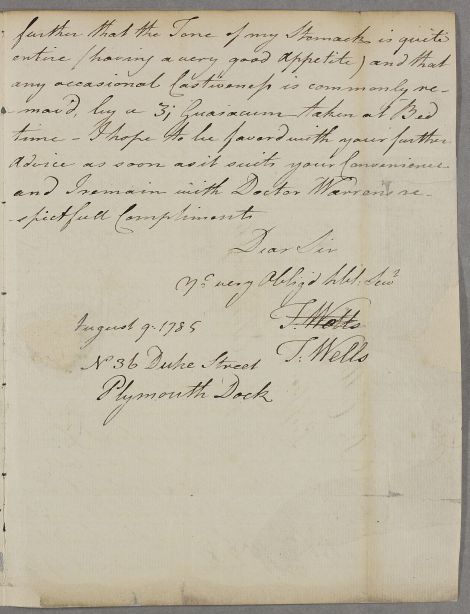 further that the Tone of my Stomach is quite
entire (having a very good appetite) and that
any occasional Costiveness is commonly re-
mov'd, by a ʒi Guaiacum taken at Bed
time - I hope to be favord with your further
advice as soon as it suits your Convenience
and I remain with Doctor Warrens re-
-spectfull Compliments
Dear Sir
yr. very Oblig'd hbl: Servt
T. Wells
August 9. 1785
T. Wells
No 36 Duke Street
Plymouth Dock